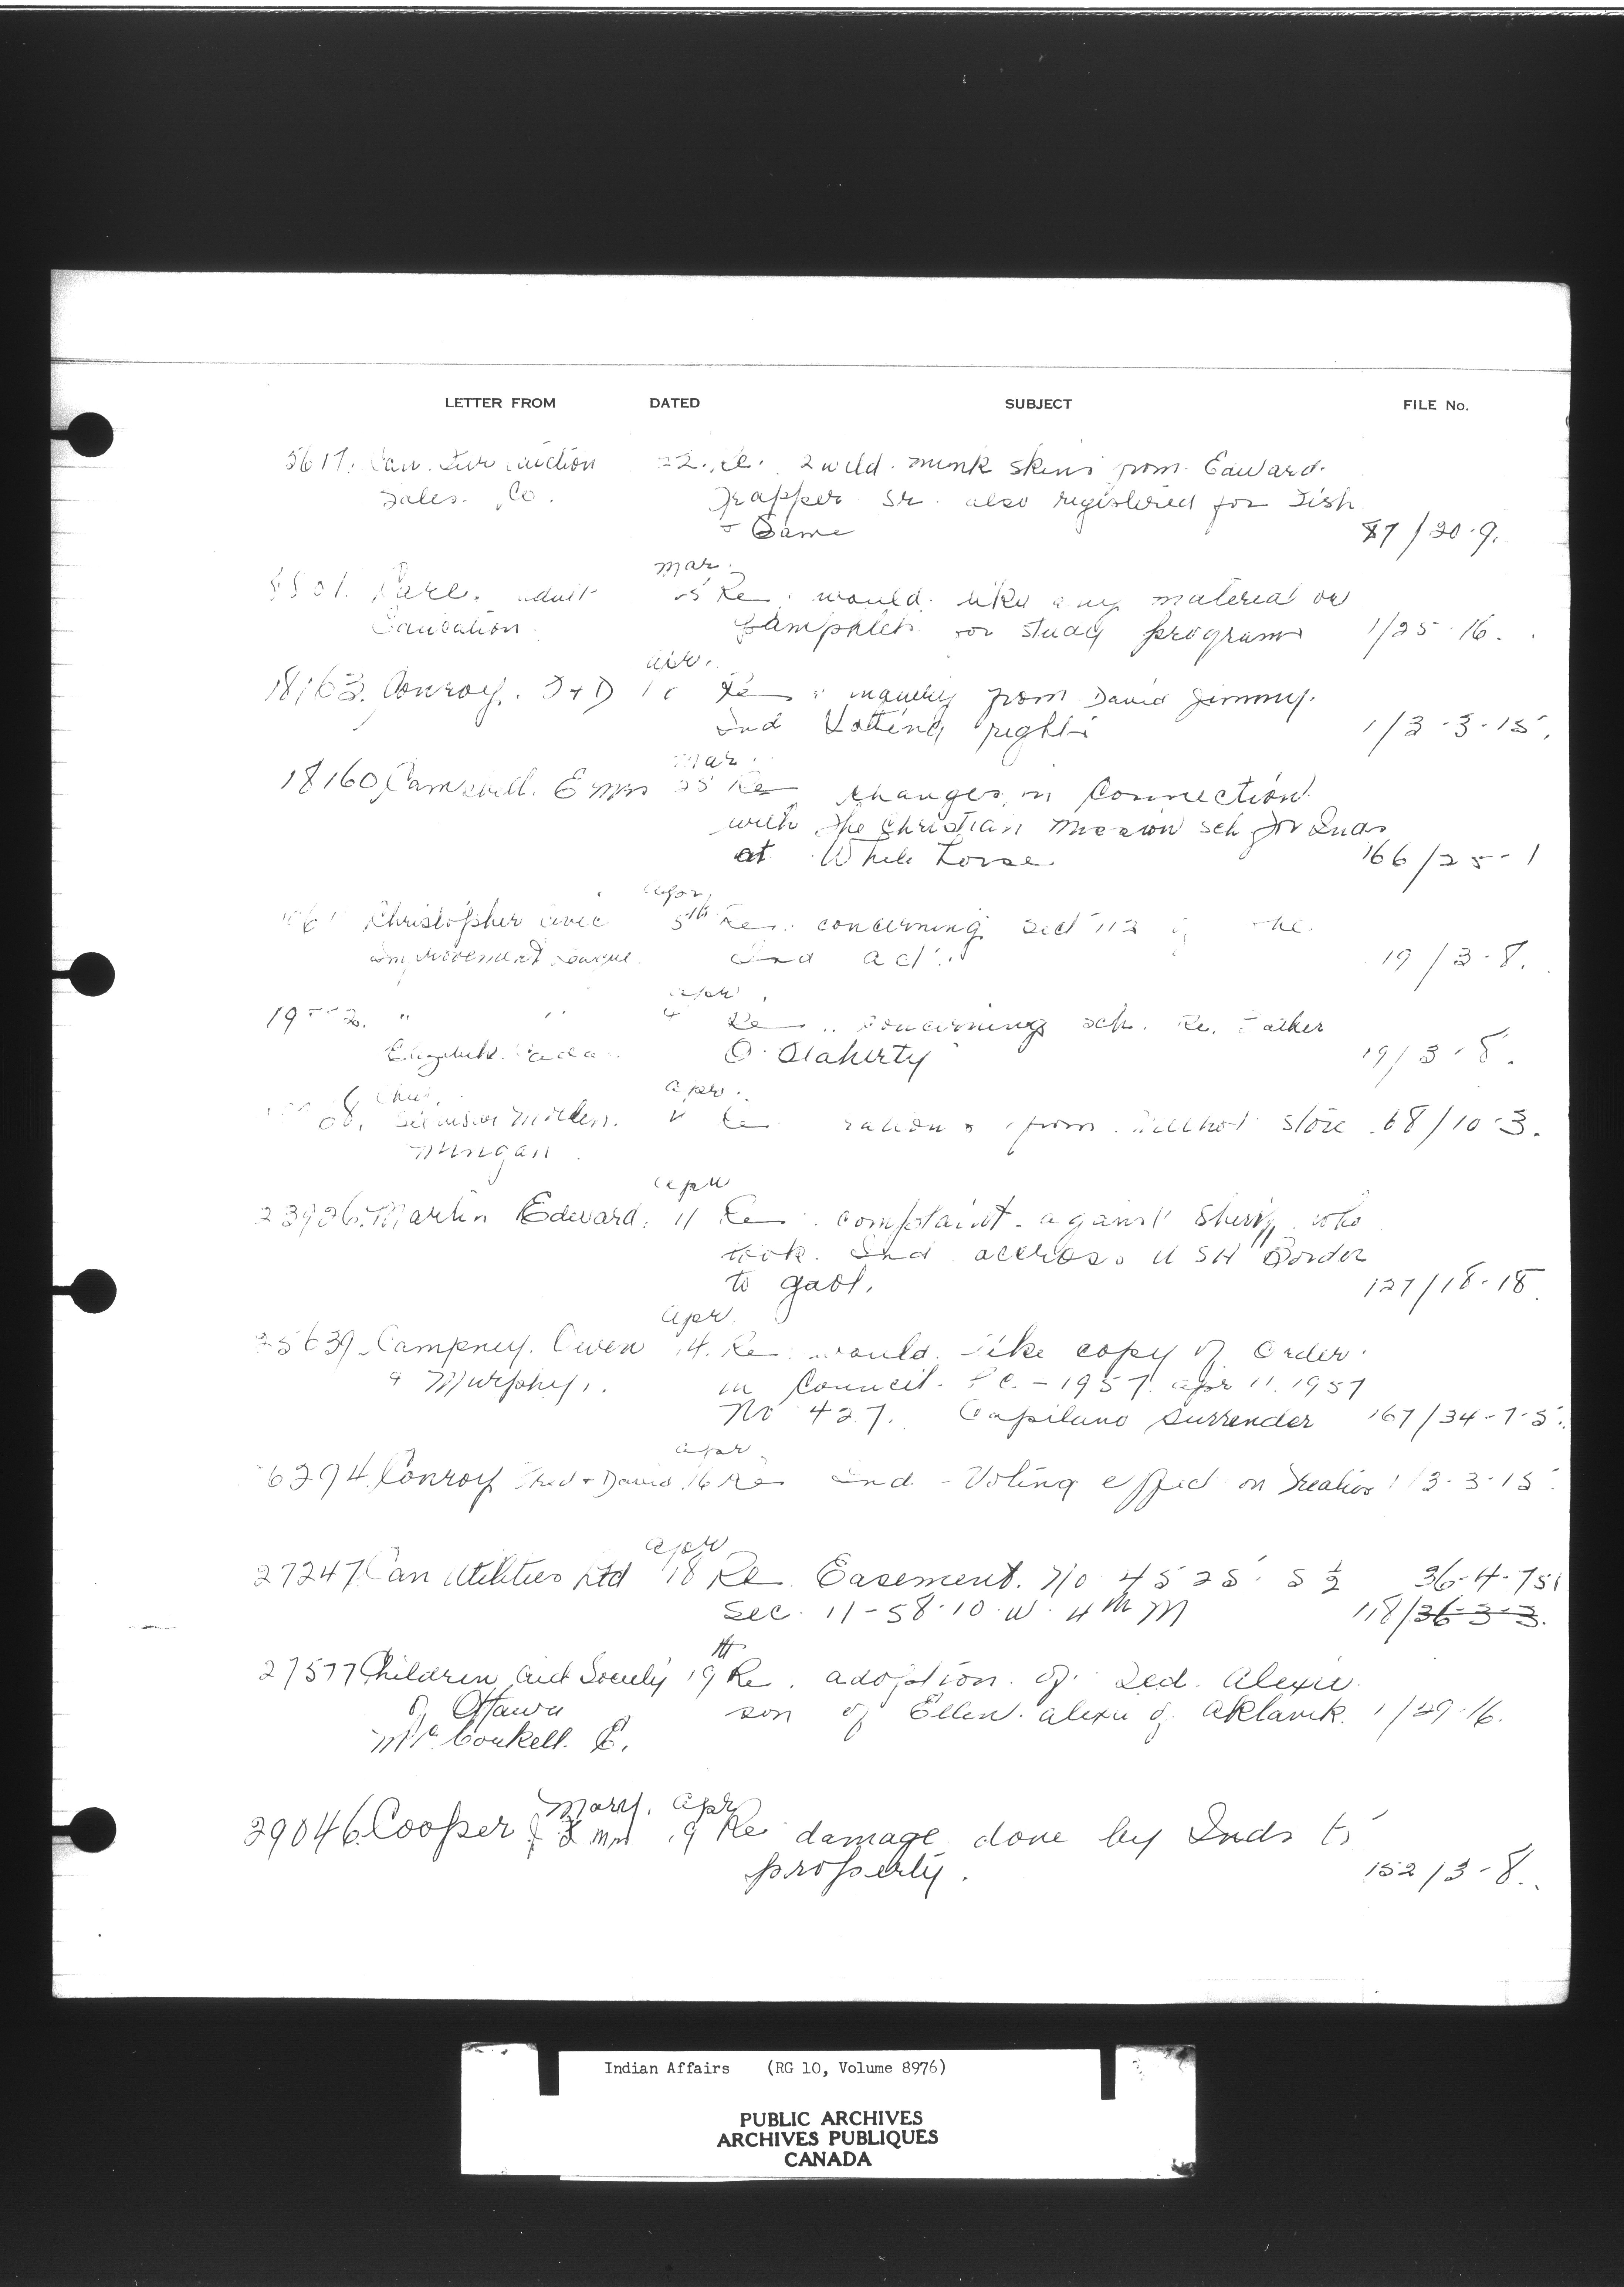 LETTER FROM DATED SUBJECT FILE No.
5617. Can. Fur Auction 22. Re. 2 wild. mink skins from. Edward.
Sales. Co. Trapper Sr. also registered for Fish
+ Game 87/20-9.
Mar.
Re. would. like any material or
Education. pamphlets for study programs 1/25-16.
apr.
18163. Conroy. F + D Re inquiry from David Jimmy.
Ind Votting rights 1/3-3-15.
Mar.
18160 Campbell. E Mrs 25 Re changes in Connection
with the Christian Mission sch for Inds
at White horse 166/25-1
apr.
Christopher Civic 5th Re. concerning sect 112 of the
Improvement League. Ind act. 19/3-8.
apr.
" " 4 Re concerning sch. Re. Father
Elizabeth. O. Flaherty 19/3-8.
apr.
Re rations from store 68/10-3.
apr
23926. Martin Edward. 11 Re. complaint against Sheriff who
took. Ind accross USA Border
to gaol. 127/18-18
apr
25639. Campney. Owen 14. Re. would. like copy of Order.
& Murphy. in Council. P.C. - 1957. apr 11. 1957
No 427. Capilano Surrender 167/34-7-5.
apr
6294. Conroy Fred + David. 16 Re Ind - Voting effect on Treaties 1/3-3-15.
apr
27247. Can Utilities Ltd 18 Re Easement. No 4525. S ½ 36-4-751
Sec. 11-58-10-W. 4th M 118/36-3-3.
th
27577 Children Aid Society 19 Re. adoption. of. Alexie.
of Ottawa son of Ellen. Alexie of Aklavik. 1/29-16.
Mc Conkell. E.
Mary. apr
29046. Cooper Mrs 19 Re damage done by Inds to
property. 152/3-8.
Indian Affairs (RG 10, Volume 8976)
PUBLIC ARCHIVES
ARCHIVES PUBLIQUES
CANADA